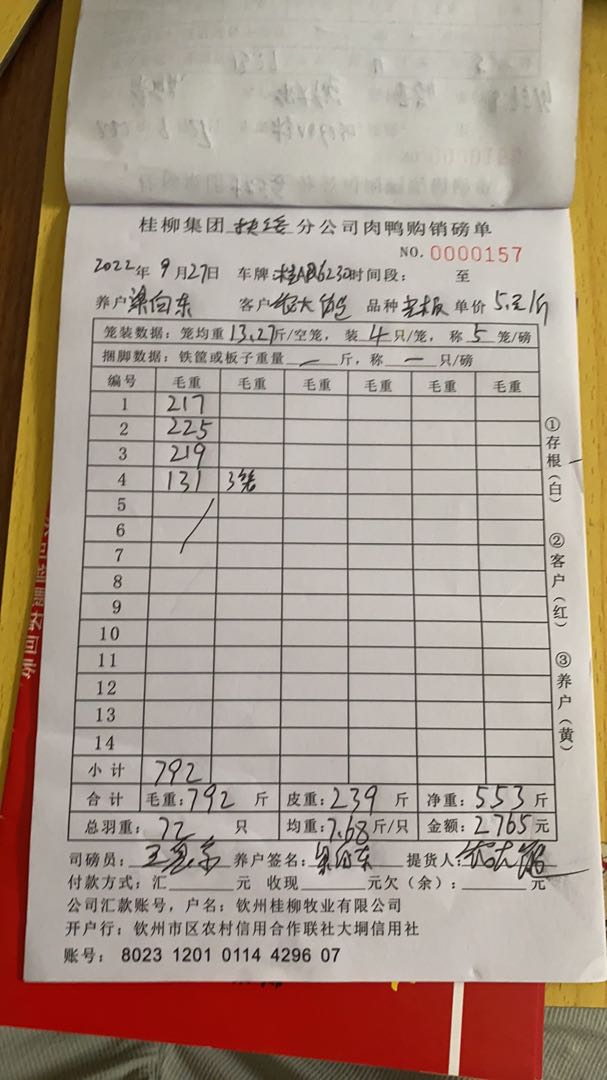 桂柳集团扶绥分公司肉鸭购销磅单
NO. 0000157
2022年9月27日 车牌 6230时间段： 至
养户 梁向东 客户 农大 品种 单价 5元/斤
笼装数据：笼均重13.27斤/空笼，装4只/笼，称5笼/磅
捆脚数据：铁筐或板子重量—斤，称—只/磅
编号 毛重 毛重 毛重 毛重 毛重 毛重
1 217
2 225
3 219
4 131 3笼
5
6
7
8
9
10
11
12
13
14
小计 792
合计 毛重：792斤 皮重：239斤 净重：553斤
总羽重：72只 均重：7.68斤/只 金额：2765元
司磅员： 养户签名：梁向东 提货人：农大
付款方式：汇 元 收现 元欠（余）： 元
公司汇款账号，户名：钦州桂柳牧业有限公司
开户行：钦州市区农村信用合作联社大垌信用社
账号：8023 1201 0114 4296 07
①存根（白）
②客户（红）
③养户（黄）